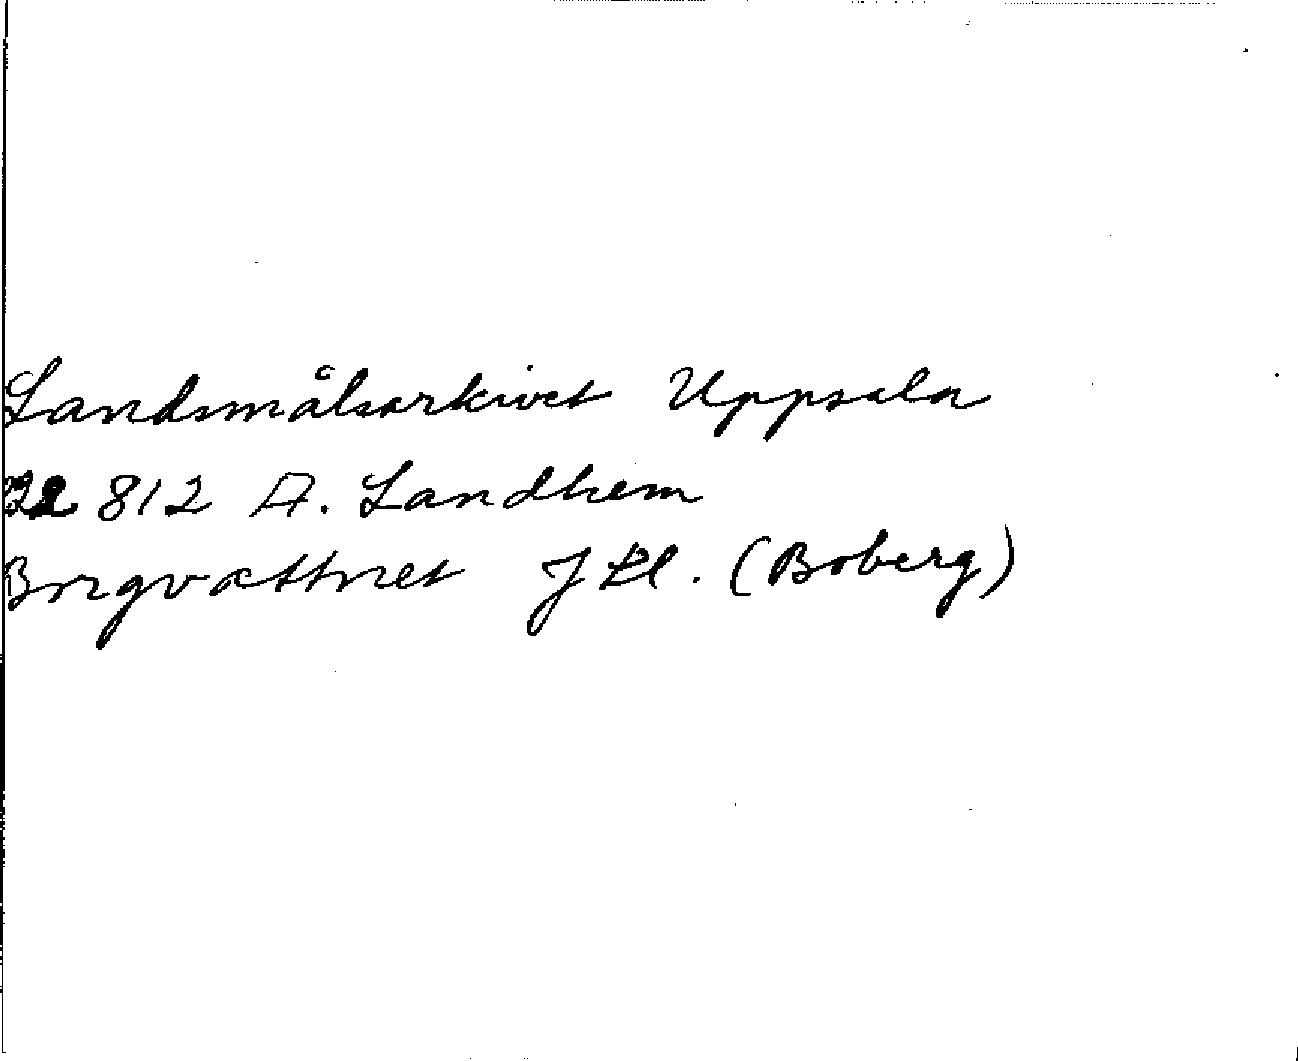 Landsmålsarkivet Uppsala
22 812 A. Landhem
Borgvattnet Jtl. (Boberg)